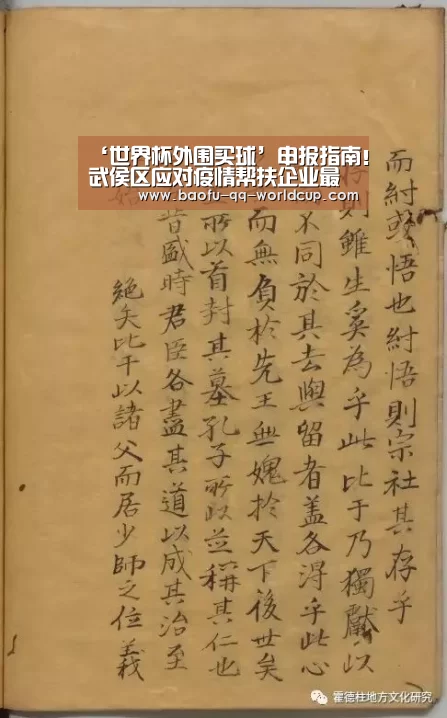 ‘世界杯外围买球’申报指南!
武侯区应对疫情帮扶企业最
www.baofu-qq-worldcup.com
而紂或悟也紂悟則宗社其存乎
則雖生奚為乎此比于乃獨獻以
不同於其去與留者盖各得乎此心
而無負於先王無媿於天下後世矣
所以首封其墓孔子所以並稱其仁也
昔盛時君臣各盡其道以成其治至
絶矣比干以諸父而居少師之位義
霍德柱地方文化研究